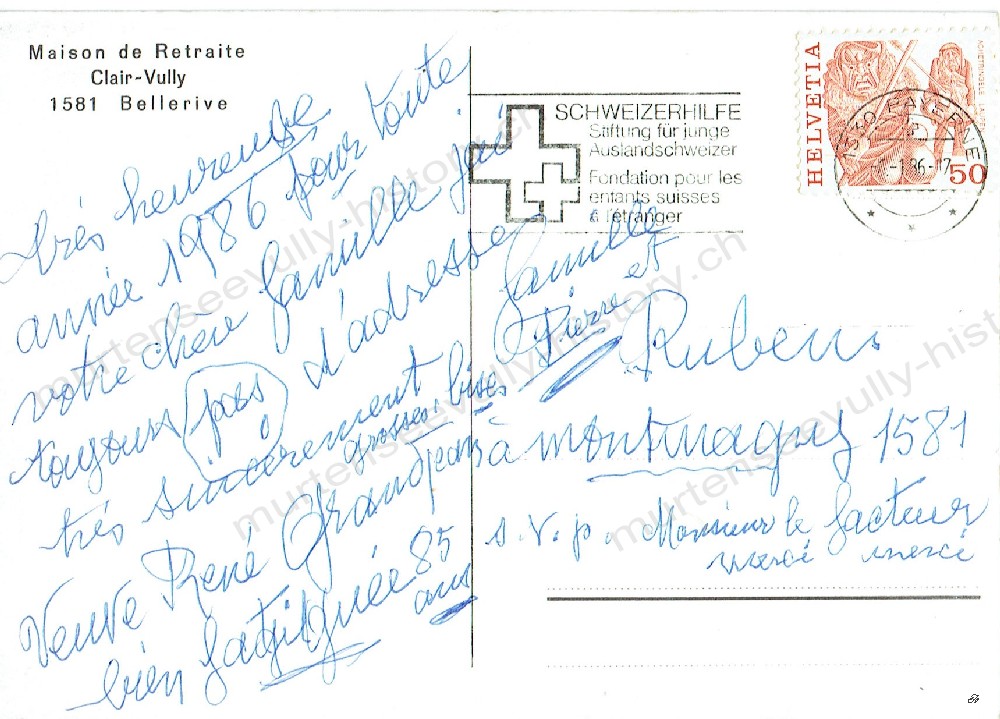 Maison de Retraite
Clair-Vully
1581 Bellerive
très heureuse
année 1986 pour toute
votre chère famille j'ai
toujours pas d'adresse
très sincèrement
grosses bises
Veuve René Grandjean
bien fatiguée 85
ans
SCHWEIZERHILFE
Stiftung für junge
Auslandschweizer
Fondation pour les
enfants suisses
à l'étranger
HELVETIA
50
1530 PAYERNE
famille
Pierre et
Ruben
à montmagny 1581
s.v.p. Monsieur le facteur
merci merci
murtenseevully-history.ch
murtenseevully-history.ch
murtenseevully-history.ch